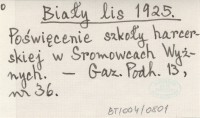 Biały lis 1925.
Poświęcenie szkoły harcer-
skiej w Sromowcach Wyż-
nych. — Gaz. Podh. 13,
nr 36.
BT/004/0501